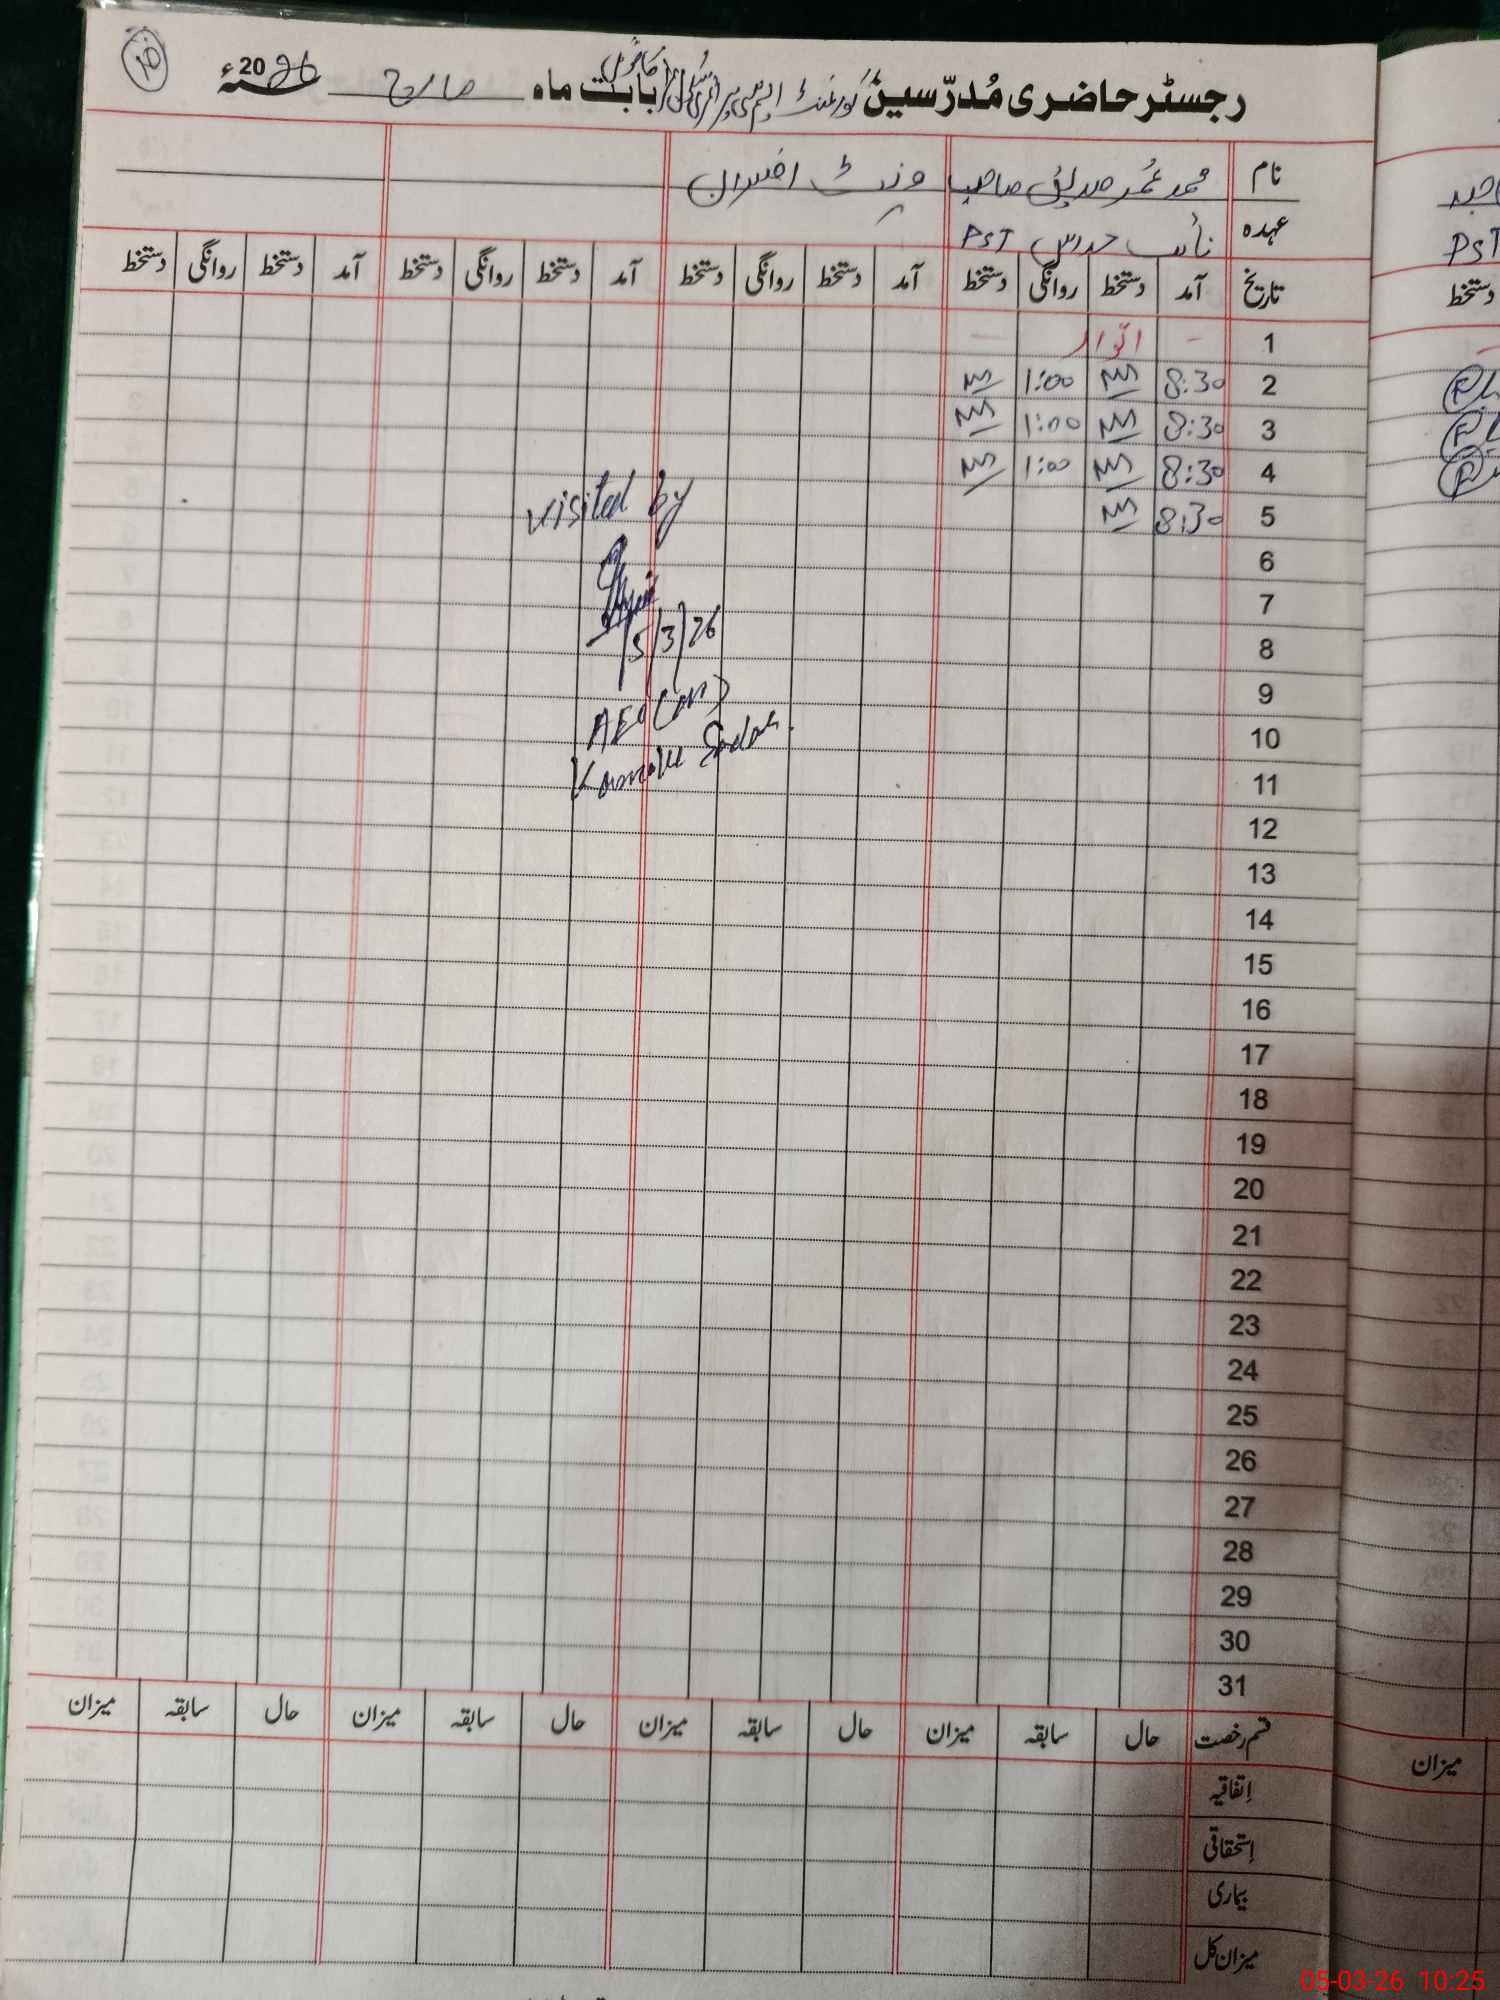 رجسٹر حاضری مُدرّسین گورنمنٹ ایم سی پرائمری سکول بابت ماہ مارچ 2026ء
نام محمد عمر صدیق صاحب وزٹ افسران
عہدہ نائب مدرس PST
تاریخ آمد دستخط روانگی دستخط آمد دستخط روانگی دستخط آمد دستخط روانگی دستخط آمد دستخط روانگی دستخط
1 - اتوار -
2 8:30 1:00
3 8:30 1:00
4 8:30 1:00
5 8:30
visited by
5/3/26
AEO
6
7
8
9
10
11
12
13
14
15
16
17
18
19
20
21
22
23
24
25
26
27
28
29
30
31
قسم رخصت حال سابقہ میزان حال سابقہ میزان حال سابقہ میزان حال سابقہ میزان
اِتفاقیہ
اِستحقاقی
بیماری
میزان کل
PST
دستخط
میزان
05-03-26 10:25